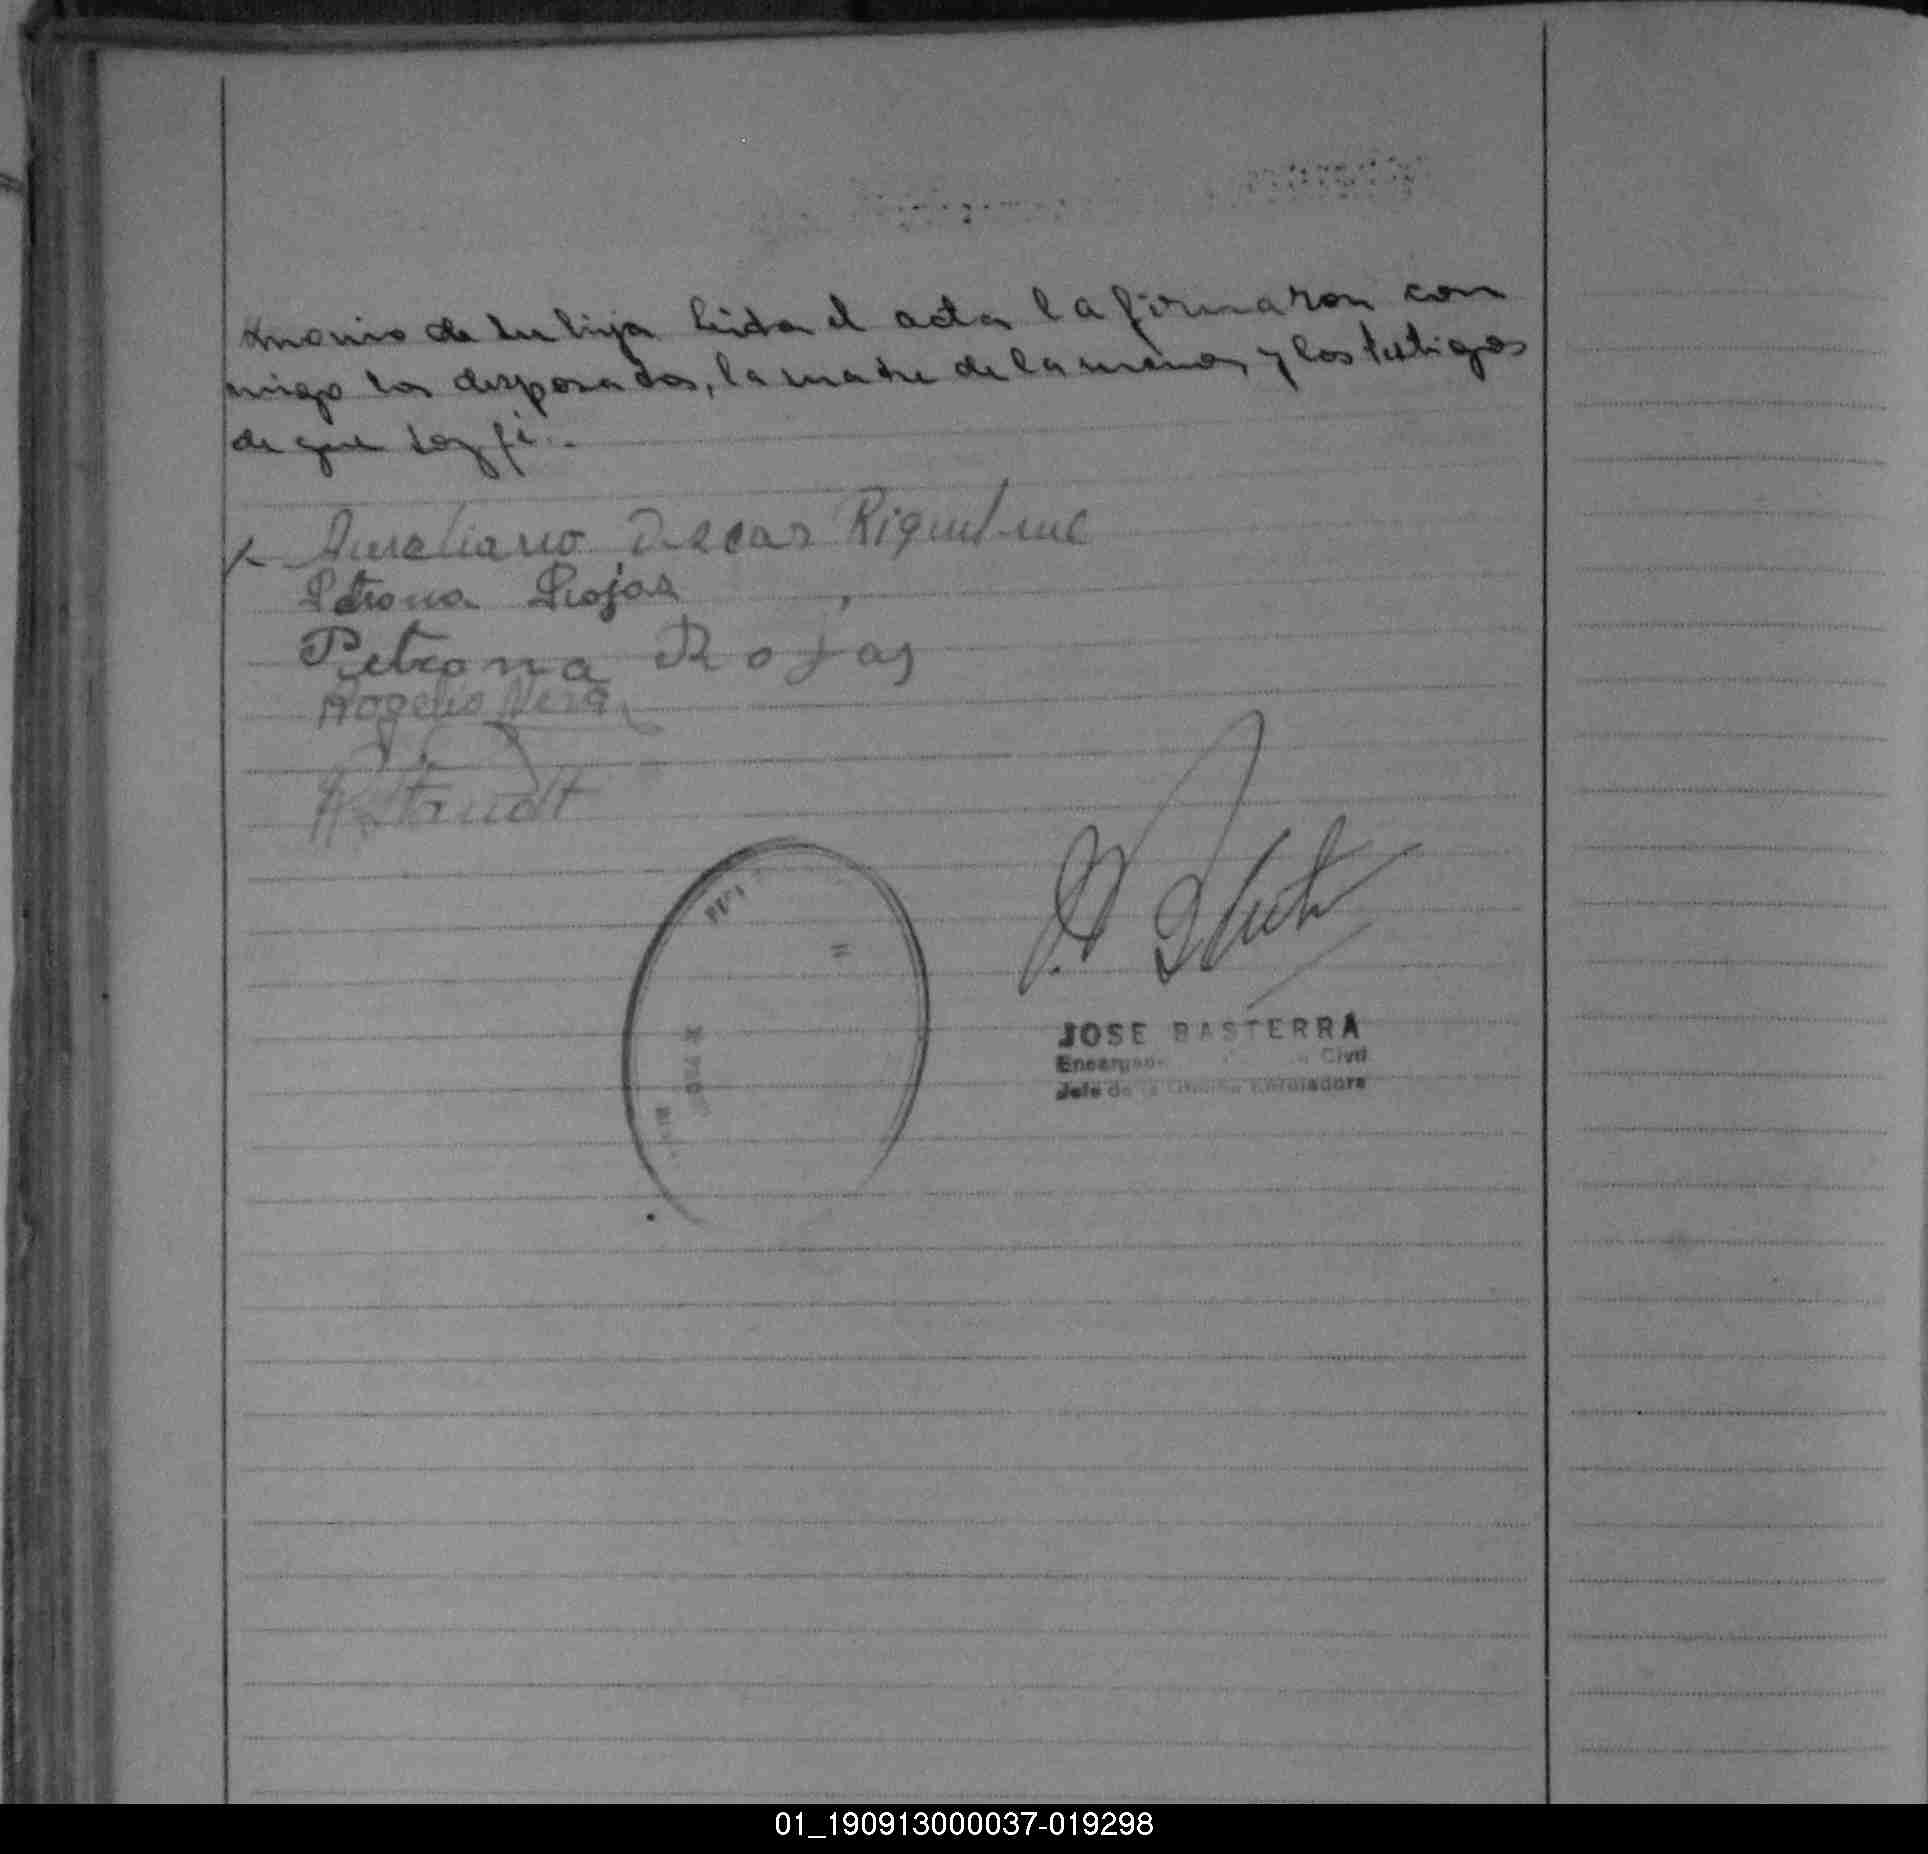 trimonio de su hija leida el acta la firmaron con
migo los desposados, la madre de la menor y los testigos
de que doy fé.-
Aureliano Oscar Riquelme
Petrona Rojas
Petrona Rojas
Rogelio Vera
JOSE BASTERRA
Civil
Jefe de la Enroladora
01_190913000037-019298